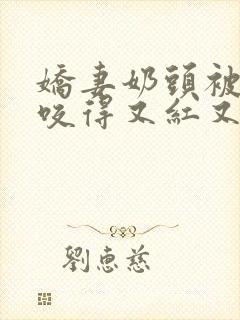 嬌妻奶頭被
咬得又紅又
劉惠慈